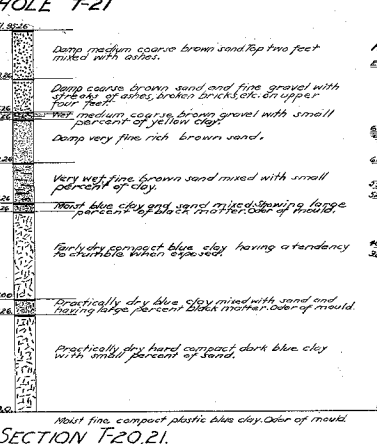 HOLE T-21
Damp medium coarse brown sand Top two feet
mixed with ashes.
Damp coarse brown sand and fine gravel with
streaks of ashes, broken bricks, etc. on upper
four feet.
Wet medium coarse brown gravel with small
percent of yellow clay.
Damp very fine rich brown sand.
Very wet fine brown sand mixed with small
percent of clay.
Moist blue clay and sand mixed. Showing large
percent of black matter. Odor of mould.
Fairly dry compact blue clay having a tendency
to crumble when exposed.
Practically dry blue clay mixed with sand and
having large percent black matter. Odor of mould.
Practically dry hard compact dark blue clay
with small percent of sand.
Moist fine compact plastic blue clay. Odor of mould.
SECTION T-20.21.